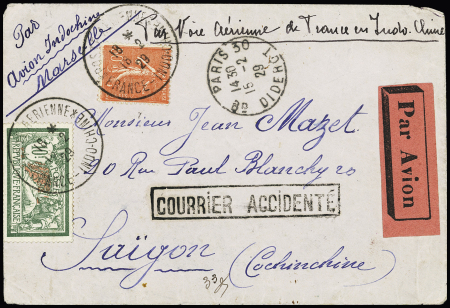 Par
Avion Indochine
Marseille
Par Voie Aérienne de France en Indo-Chine
PARIS 30
14 30
15 - 2
29
Bd DIDEROT
18
2
29
FRANCE-INDOCHINE
45c
REPUBLIQUE FRANÇAISE
Par Avion
Monsieur Jean Mazet
Rue Paul Blanchy
COURRIER ACCIDENTÉ
Saïgon
(Cochinchine)